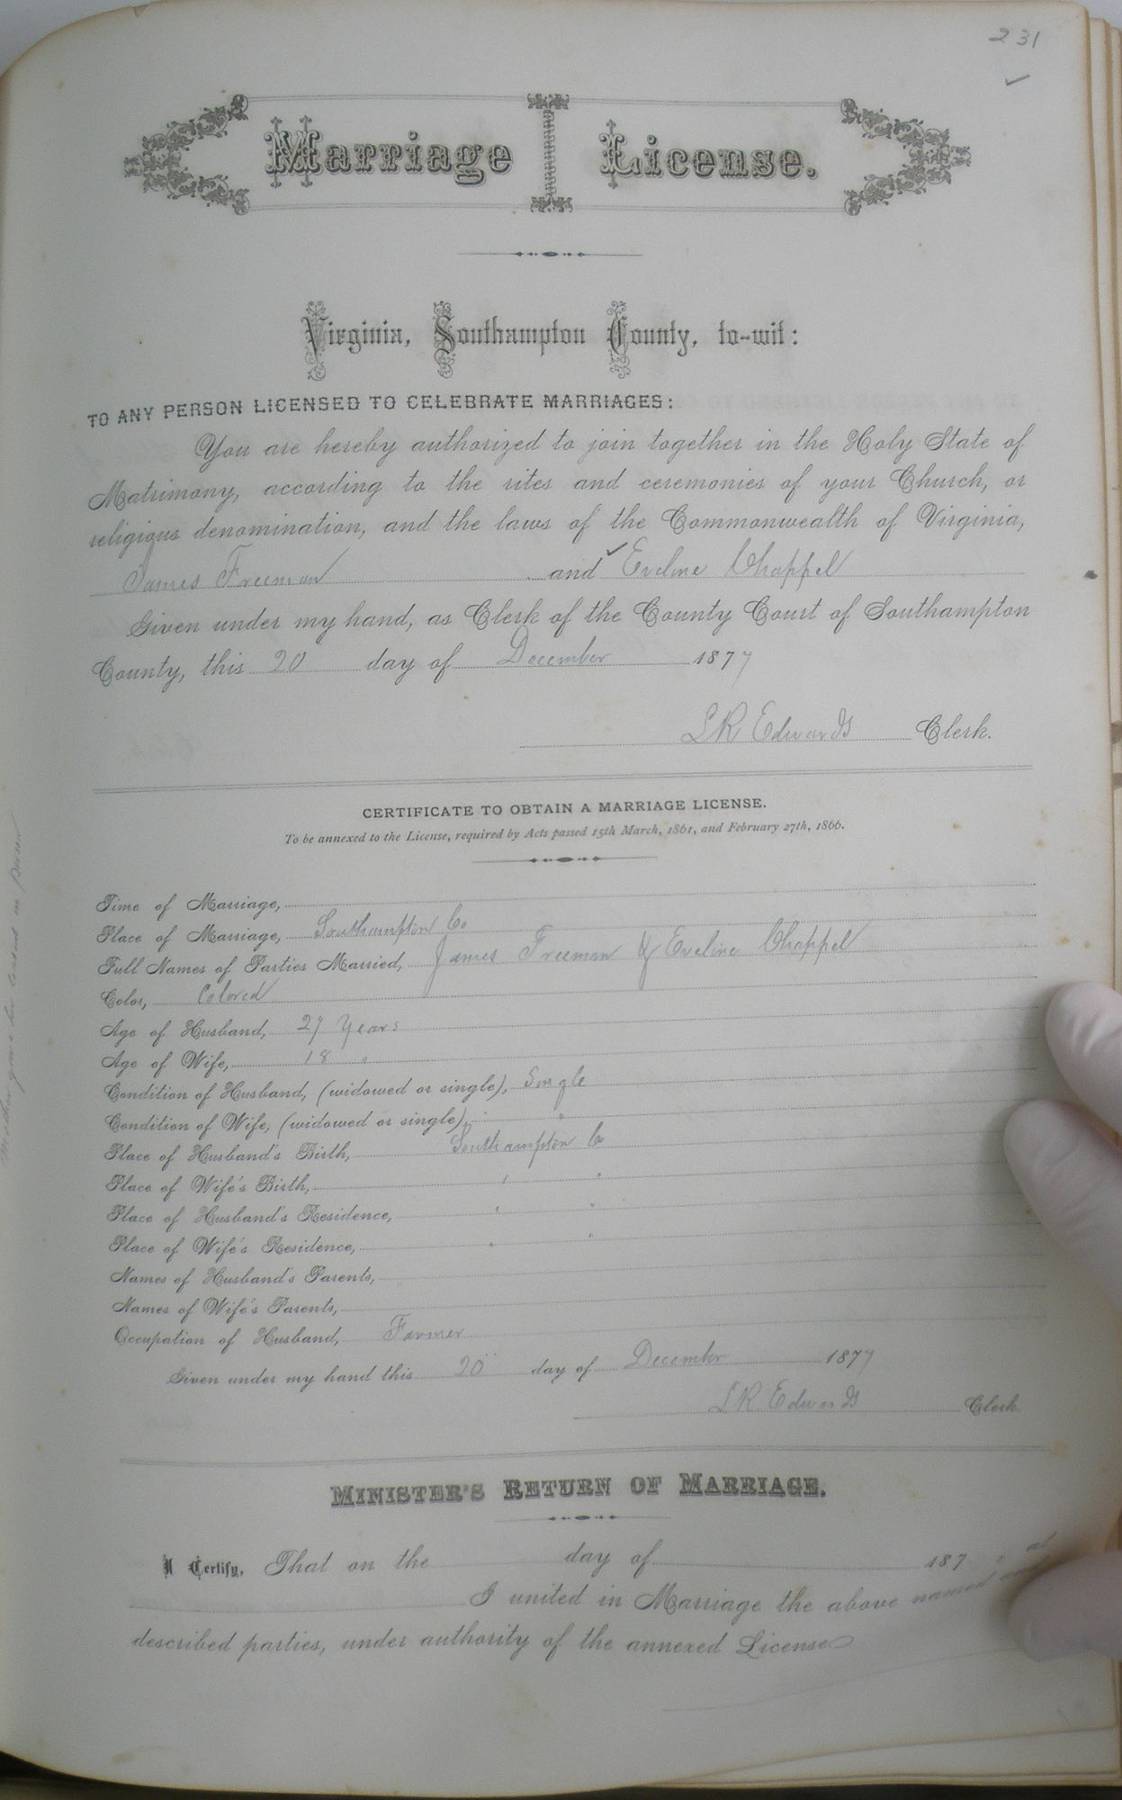 231
Marriage License.
Virginia, Southampton County, to-wit:
TO ANY PERSON LICENSED TO CELEBRATE MARRIAGES:
You are hereby authorized to join together in the Holy State of
Matrimony, according to the rites and ceremonies of your Church, or
religious denomination, and the laws of the Commonwealth of Virginia,
James Freeman and Eveline Chappel
Given under my hand, as Clerk of the County Court of Southampton
County, this 20 day of December 1877
L R Edwards Clerk.
CERTIFICATE TO OBTAIN A MARRIAGE LICENSE.
To be annexed to the License, required by Acts passed 15th March, 1861, and February 27th, 1866.
Time of Marriage,
Place of Marriage, Southampton Co
Full Names of Parties Married, James Freeman & Eveline Chappel
Color, Colored
Age of Husband, 27 Years
Age of Wife, 18 "
Condition of Husband, (widowed or single), Single
Condition of Wife, (widowed or single), "
Place of Husband's Birth, Southampton Co
Place of Wife's Birth, " "
Place of Husband's Residence, " "
Place of Wife's Residence, " "
Names of Husband's Parents,
Names of Wife's Parents,
Occupation of Husband, Farmer
Given under my hand this 20 day of December 1877
L R Edwards Clerk
MINISTER'S RETURN OF MARRIAGE.
I Certify, That on the day of 187 , at
I united in Marriage the above named and
described parties, under authority of the annexed License